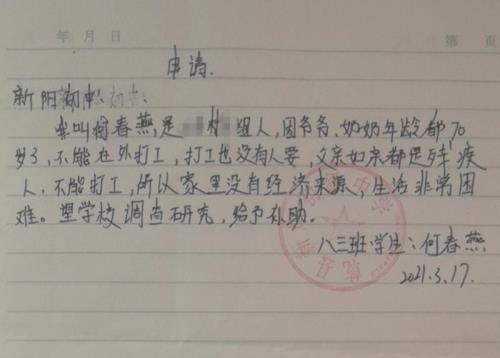 年 月 日 第 页
申请.
新阳初中:
我叫何春燕,是 村 组人,因爷爷、奶奶年龄都70
岁了,不能在外打工,打工也没有人要,父亲母亲都是残疾
人,不能打工,所以家里没有经济来源,生活非常困
难。望学校调查研究,给予补助。
八三班学生:何春燕
2021.3.17.